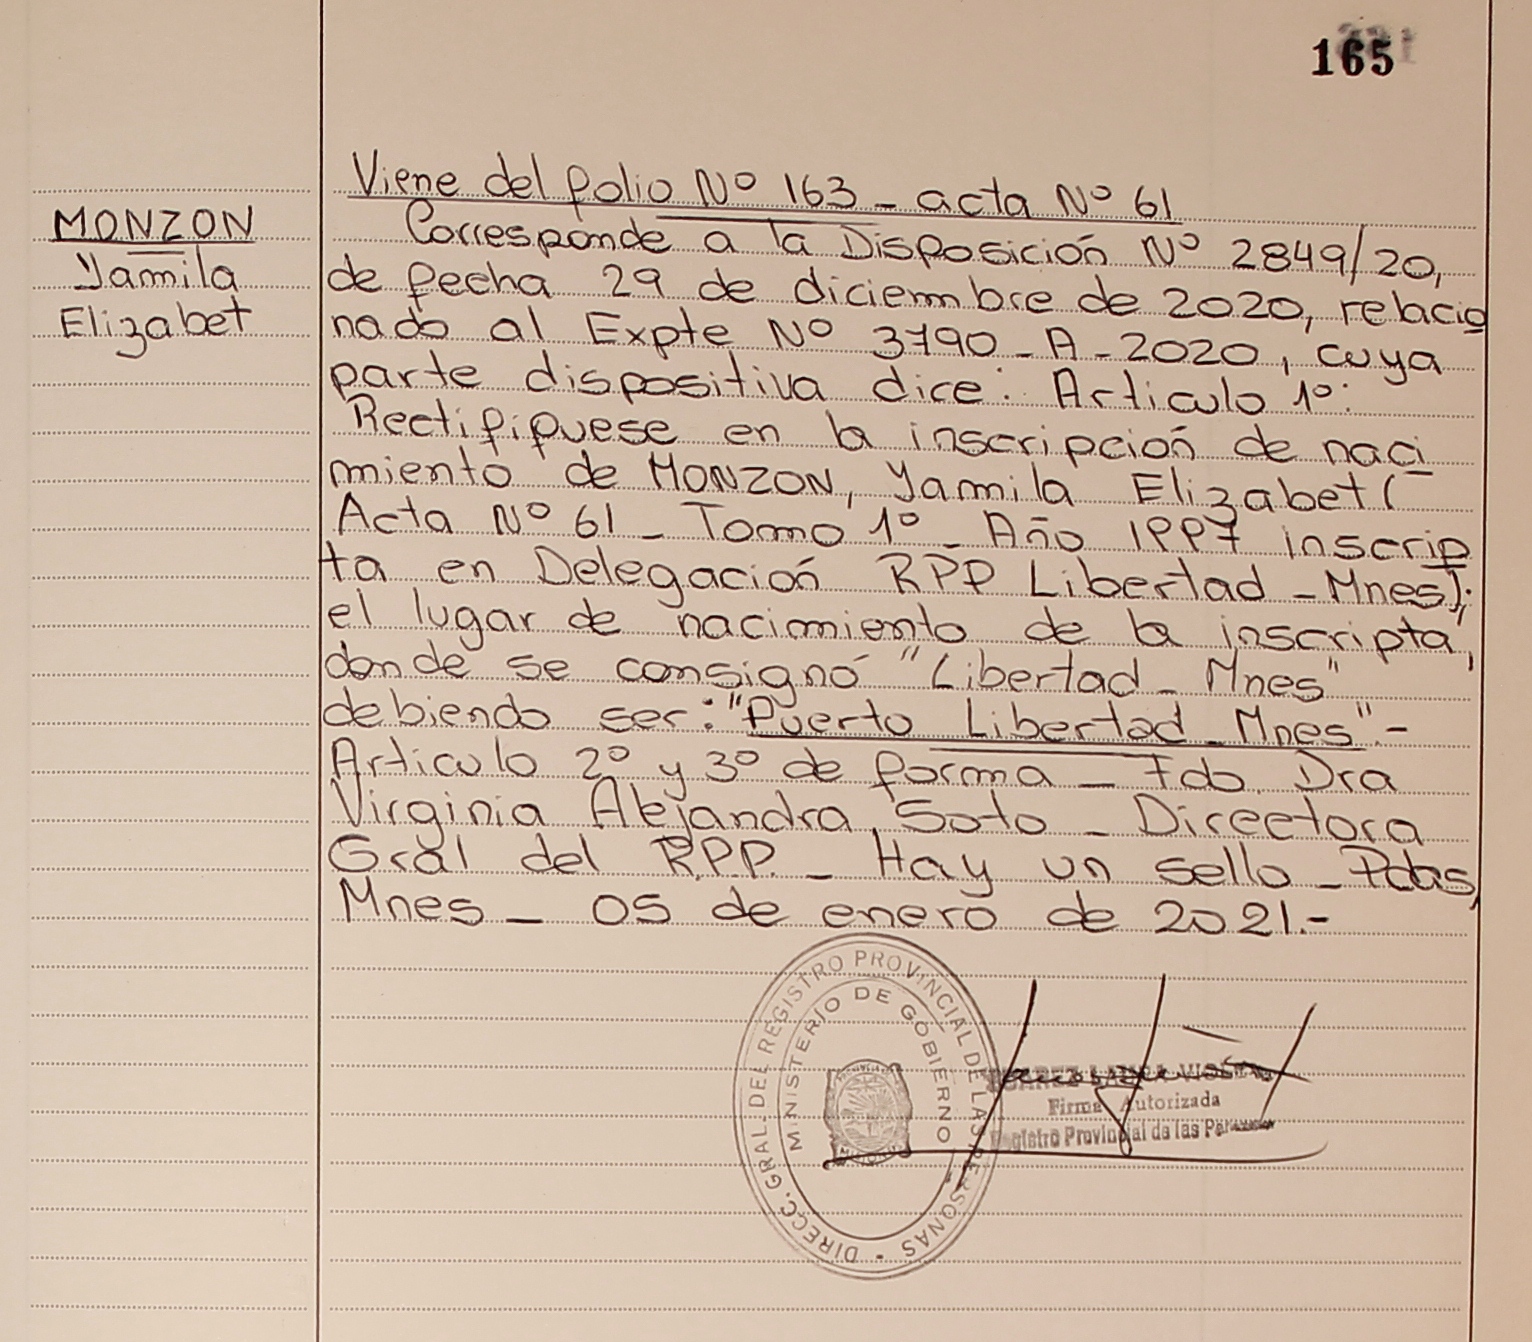 165
MONZON
Yamila
Elizabet
Viene del folio Nº 163 - acta Nº 61
Corresponde a la Disposición Nº 2849/20,
de fecha 29 de diciembre de 2020, relacio
nado al Expte Nº 3790 - A - 2020, cuya
parte dispositiva dice: Articulo 1º:
Rectifiquese en la inscripción de naci
miento de MONZON, Yamila Elizabet (
Acta Nº 61 - Tomo 1º - Año 1997 inscrip
ta en Delegación RPP Libertad - Mnes);
el lugar de nacimiento de la inscripta,
donde se consignó "Libertad - Mnes"
debiendo ser: "Puerto Libertad - Mnes".-
Articulo 2º y 3º de forma - Fdo. Dra
Virginia Alejandra Soto - Directora
Gral del R.P.P. - Hay un sello - Pdas,
Mnes - 05 de enero de 2021.-
DIRECC. GRAL. DEL REGISTRO PROVINCIAL DE LAS PERSONAS
MINISTERIO DE GOBIERNO
LAURA
Firma Autorizada
Registro Provincial de las